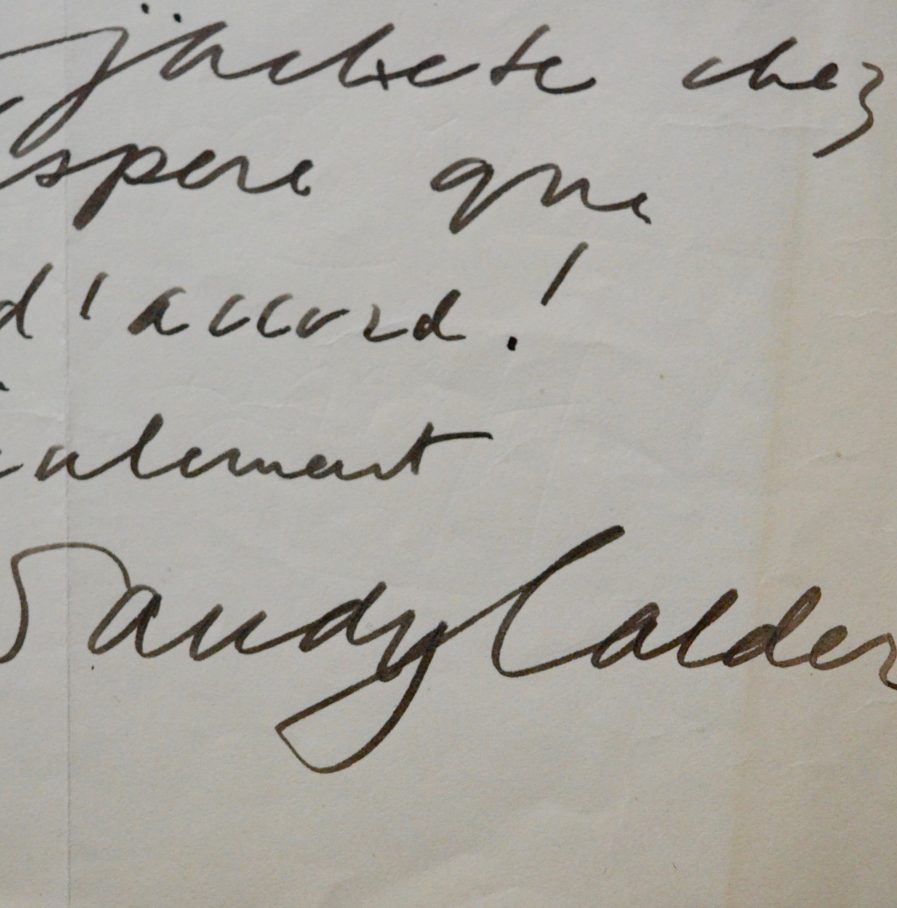 j'achete chez
spere que
d'accord!
alement
Sandy Calder